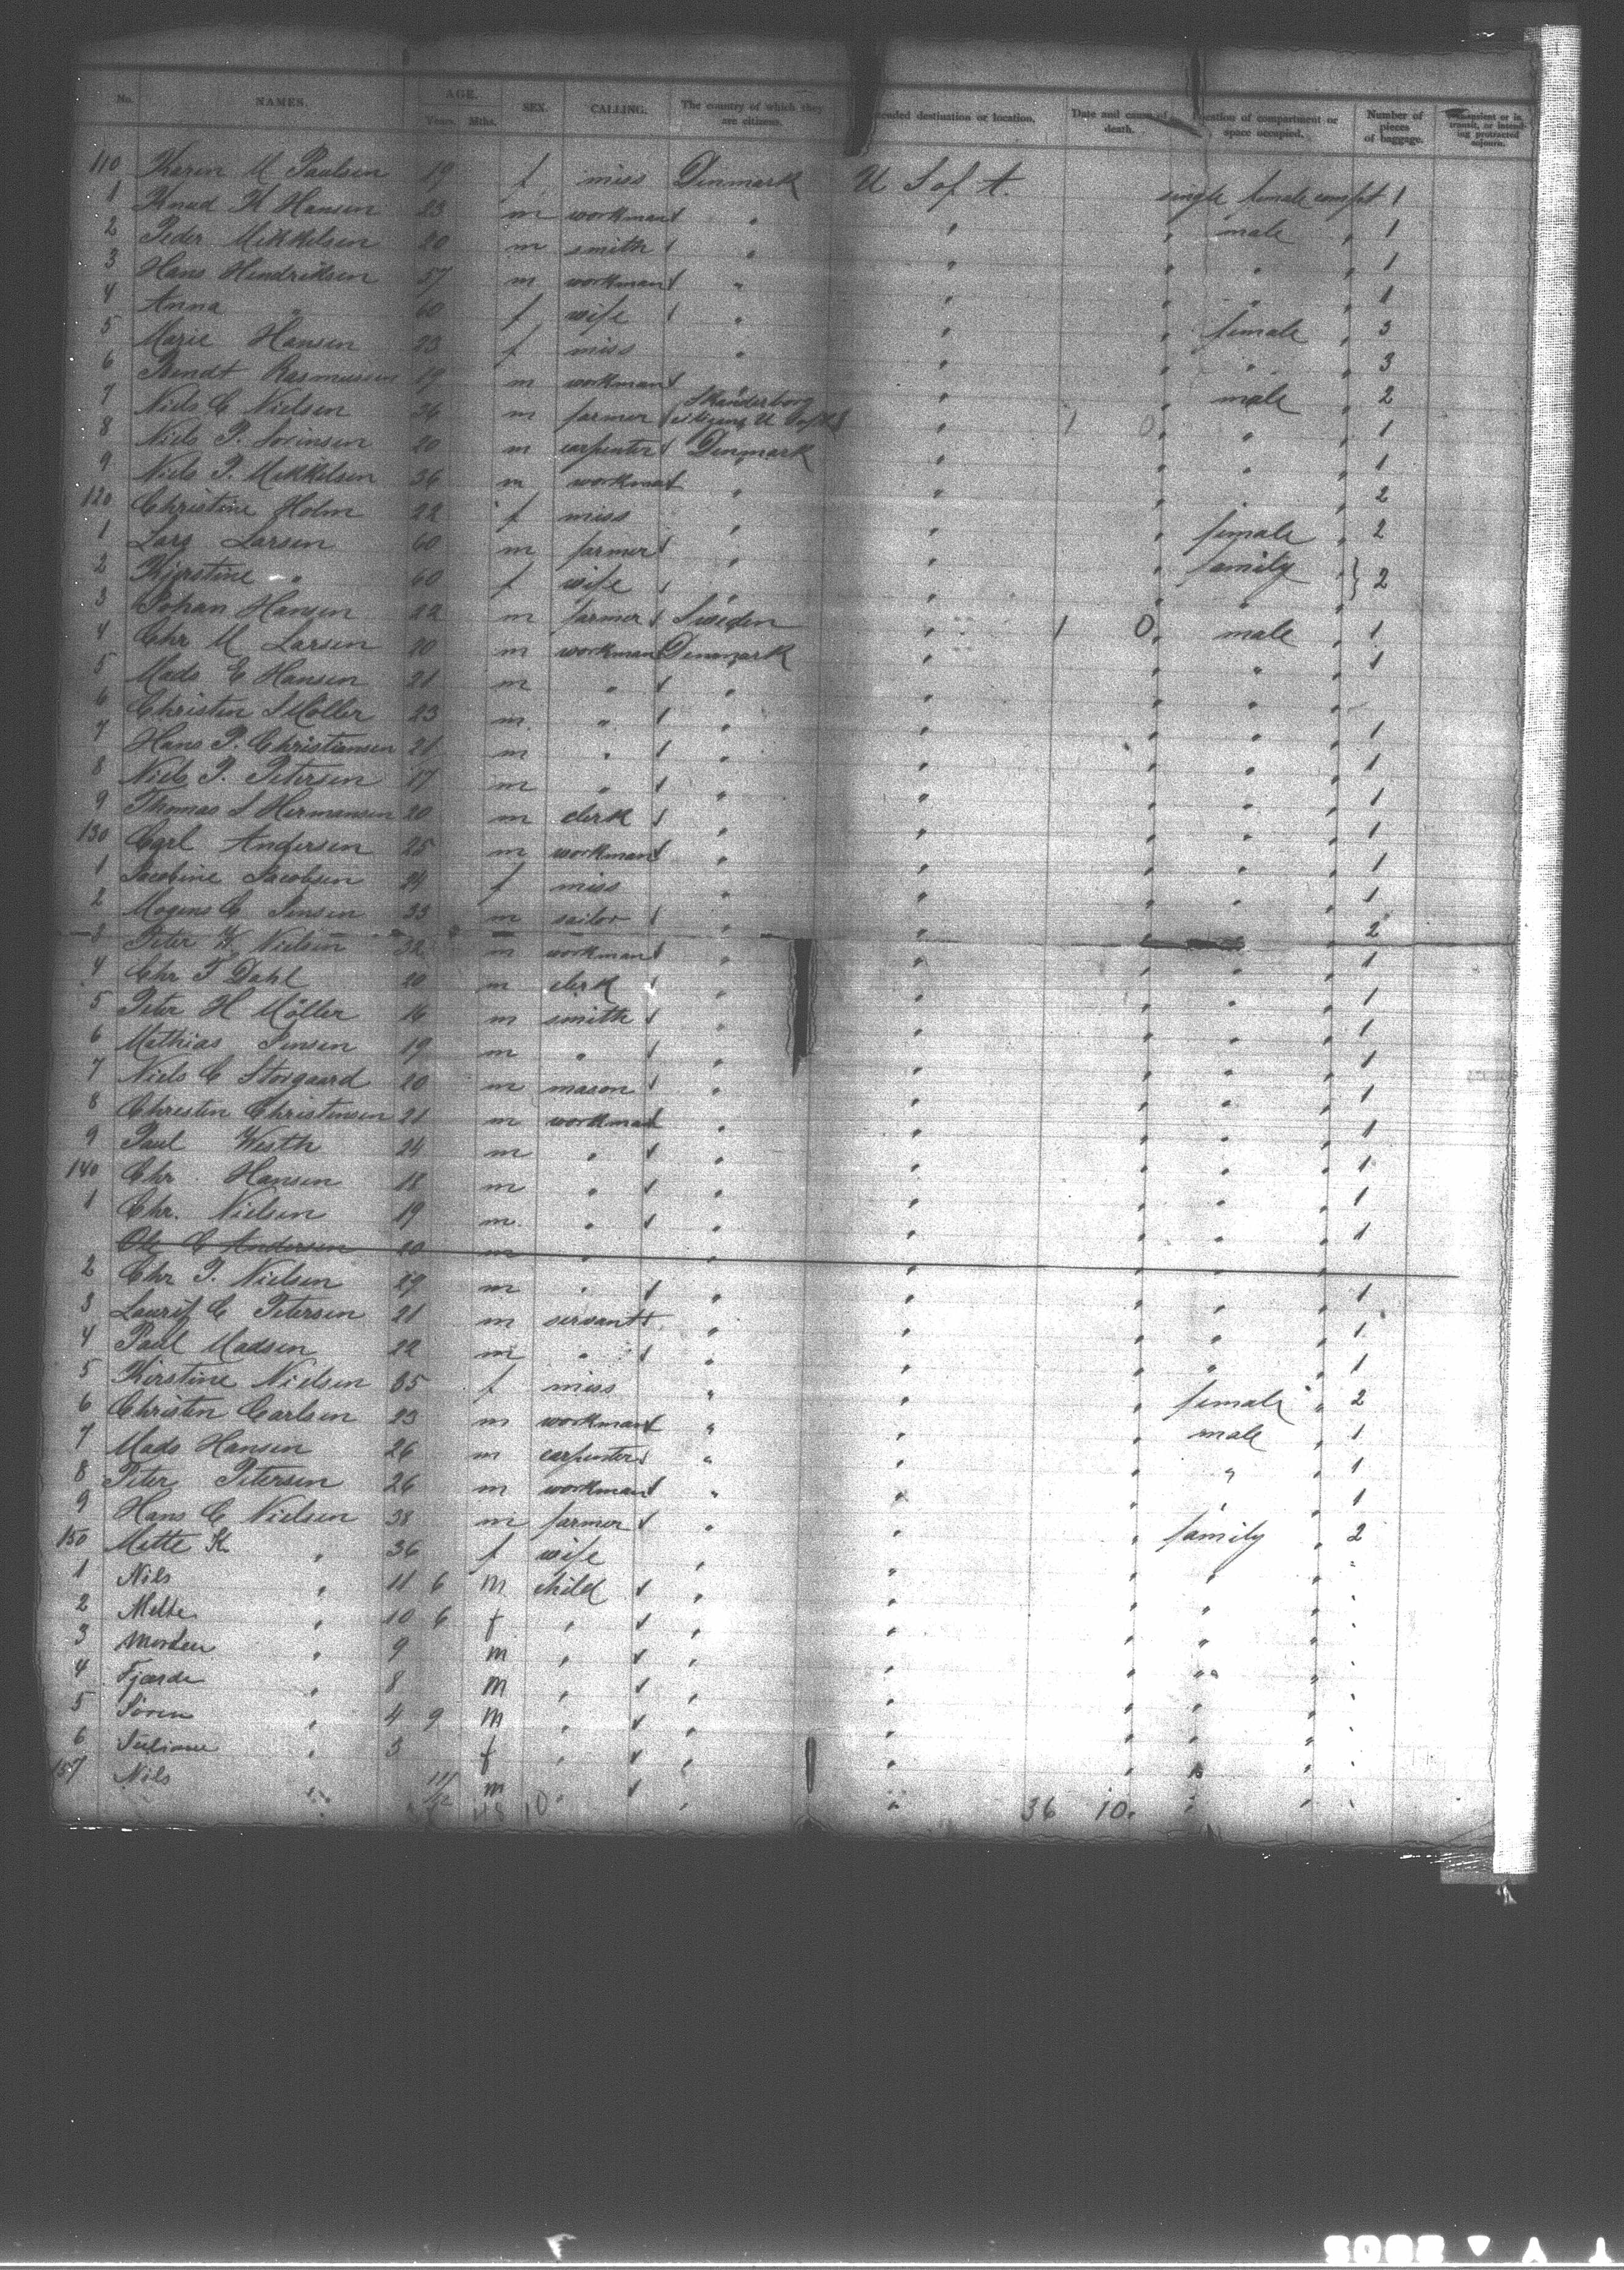 No. NAMES. AGE. Years. Mths. SEX. CALLING. The country of which they are citizens. ended destination or location. Date and cause of death. ocation of compartment or space occupied. Number of pieces of baggage. or in transit, or intending protracted sojourn.
110 Karen M Paulsen 19 f miss Denmark U S of A. single female compt 1
1 Knud K Hansen 23 m workman " " " male " 1
2 Peder Mikkelsen 20 m smith " " " " " 1
3 Hans Hendriksen 57 m workman " " " " " 1
4 Anna " 60 f wife " " " female " 3
5 Marie Hansen 23 f miss " " " " " 3
6 Bendt Rasmussen 19 m workman " " " male " 2
7 Niels C Nielsen 36 m farmer Skanderborg citizen U S of A " 1 0 " " " 1
8 Niels P. Sorensen 20 m carpenter Denmark " " " " 1
9 Niels P. Mikkelsen 36 m workman " " " " 2
120 Christine Holm 22 f miss " " " female " 2
1 Lars Larsen 60 m farmer " " " family " } 2
2 Kjerstine " 60 f wife " " " " "
3 Johan Hansen 22 m farmer Sweden " 1 0 " male " 1
4 Chr M Larsen 20 m workman Denmark " " " " 1
5 Mads E Hansen 21 m " " " " " "
6 Christen S Möller 23 m " " " " " " 1
7 Hans P. Christiansen 21 m " " " " " " 1
8 Niels P. Petersen 17 m " " " " " " 1
9 Thomas S Hermansen 20 m clerk " " " " " 1
130 Carl Andersen 25 m workman " " " " " 1
1 Jacobine Jacobsen 24 f miss " " " " " 1
2 Mogens C Jensen 33 m sailor " " " " " 2
3 Peter W. Nielsen 32 m workman " " " " " 1
4 Chr T Dahl 20 m clerk " " " " " 1
5 Peter H Möller 16 m smith " " " " " 1
6 Mathias Jensen 19 m " " " " " " 1
7 Niels C Stovgaard 20 m mason " " " " " 1
8 Christen Christensen 21 m workman " " " " " 1
9 Paul Westh 24 m " " " " " " 1
140 Chr. Hansen 18 m " " " " " " 1
1 Chr. Nielsen 19 m " " " " " " 1
Ole C Andersen 20 m " " " " " "
2 Chr P. Nielsen 29 m " " " " " " 1
3 Laurits C Petersen 21 m servant " " " " " 1
4 Paul Madsen 22 m " " " " " " 1
5 Kirstine Nielsen 35 f miss " " " female " 2
6 Christen Carlsen 23 m workman " " " male " 1
7 Mads Hansen 26 m carpenter " " " " " 1
8 Peter Petersen 26 m workman " " " " " 1
9 Hans C Nielsen 38 m farmer " " " family " 2
150 Mette K. " 36 f wife " " " " "
1 Nils " 11 6 m child " " " " "
2 Mette " 10 6 f " " " " " "
3 Morten " 9 m " " " " " "
4 Fjærde " 8 m " " " " " "
5 Sören " 4 9 m " " " " " "
6 Juliane " 3 f " " " " " "
157 Nils " 11/12 m " " " " " "
118 10 36 10